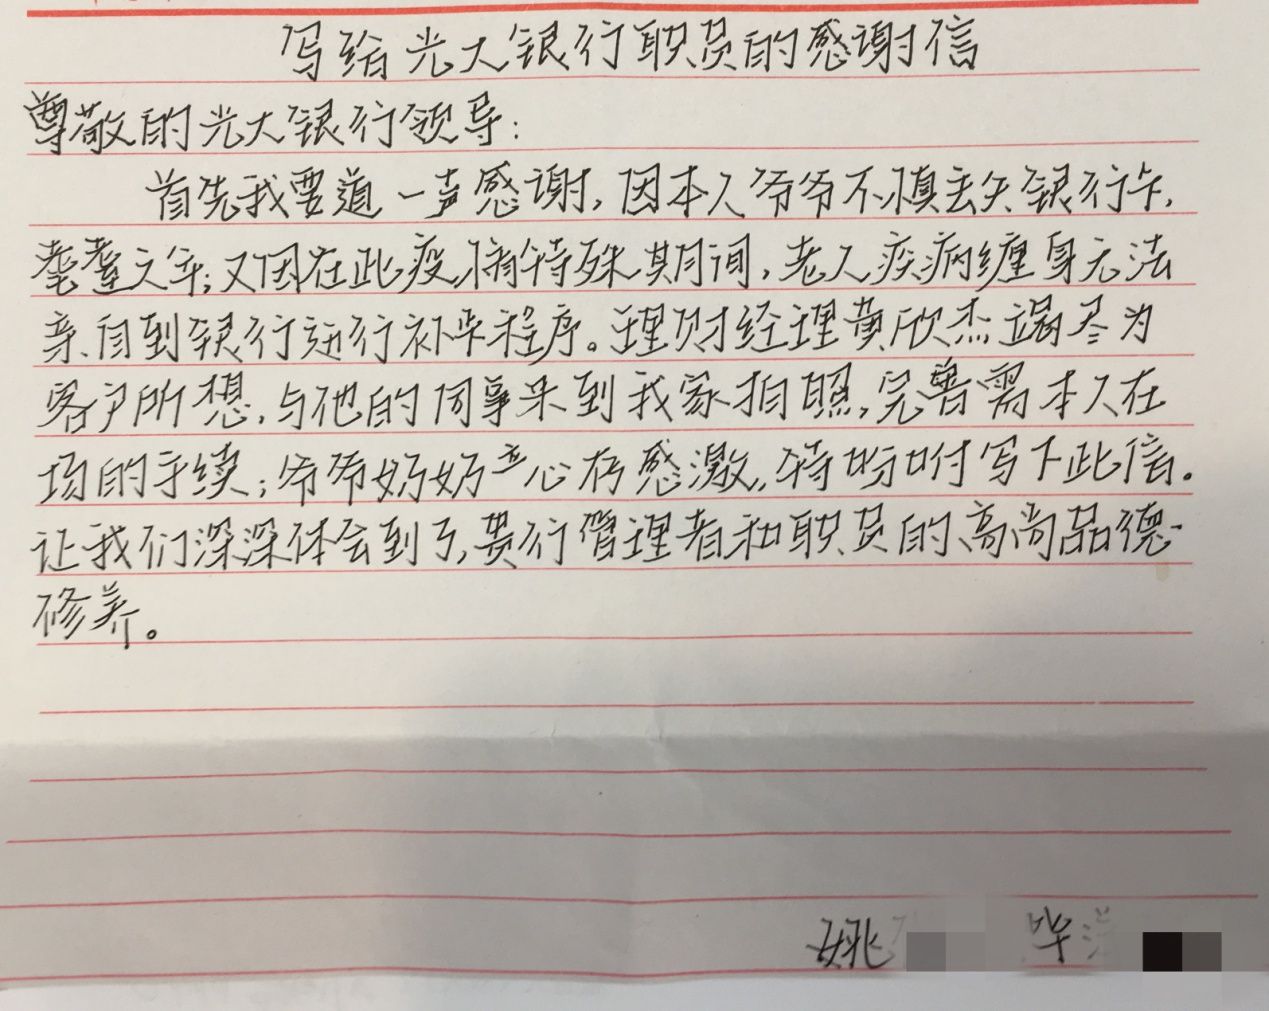 写给光大银行职员的感谢信
尊敬的光大银行领导：
首先我要道一声感谢，因本人爷爷不慎丢失银行卡，
耄耋之年；又因在此疫情特殊期间，老人疾病缠身无法
亲自到银行进行补办程序。理财经理黄欣杰竭尽为
客户所想，与他的同事来到我家拍照，完善需本人在
场的手续；爷爷奶奶心存感激，特吩咐写下此信。
让我们深深体会到了，贵行管理者和职员的高尚品德
修养。
姚